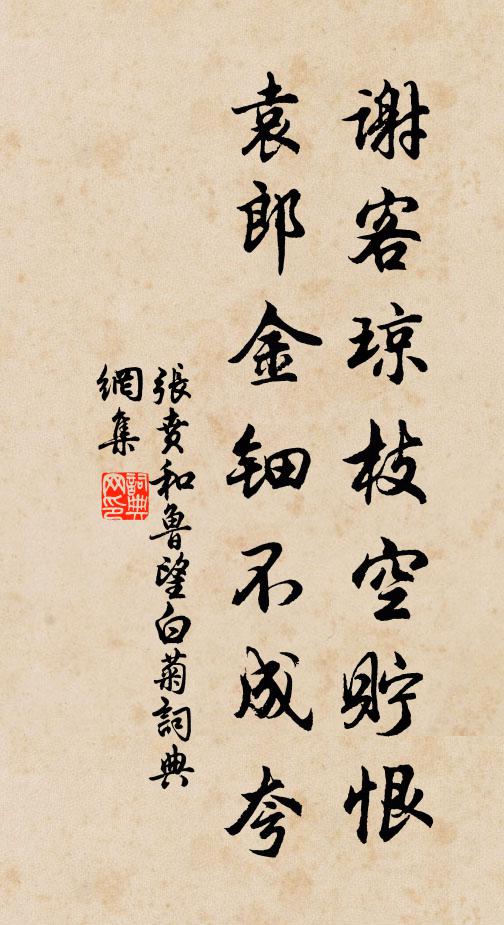 谢客琼枝空貯恨
袁郎金钿不成夸
張賁和魯望白菊詞典
網集
詞典
网印